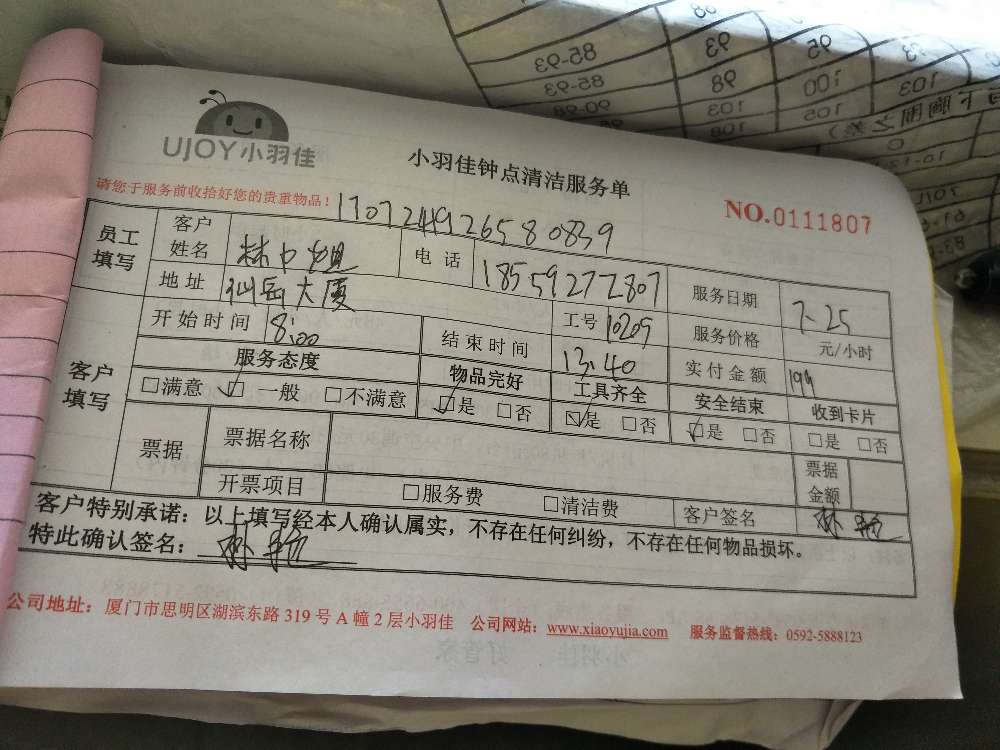 UJOY小羽佳
小羽佳钟点清洁服务单
请您于服务前收拾好您的贵重物品！
NO.0111807
17072492658 0839
员工填写 客户姓名 林小姐 电话 18559277807 服务日期 7-25
地址 仙岳大厦 工号 10209 服务价格 元/小时
客户填写 开始时间 8:00 结束时间 13:40 实付金额 199
服务态度 物品完好 工具齐全 安全结束 收到卡片
□满意 ☑一般 □不满意 ☑是 □否 ☑是 □否 ☑是 □否 □是 □否
票据 票据名称 票据金额
开票项目 □服务费 □清洁费 客户签名
客户特别承诺：以上填写经本人确认属实，不存在任何纠纷，不存在任何物品损坏。
特此确认签名：
公司地址：厦门市思明区湖滨东路 319 号 A 幢 2 层小羽佳 公司网站：www.xiaoyujia.com 服务监督热线：0592-5888123